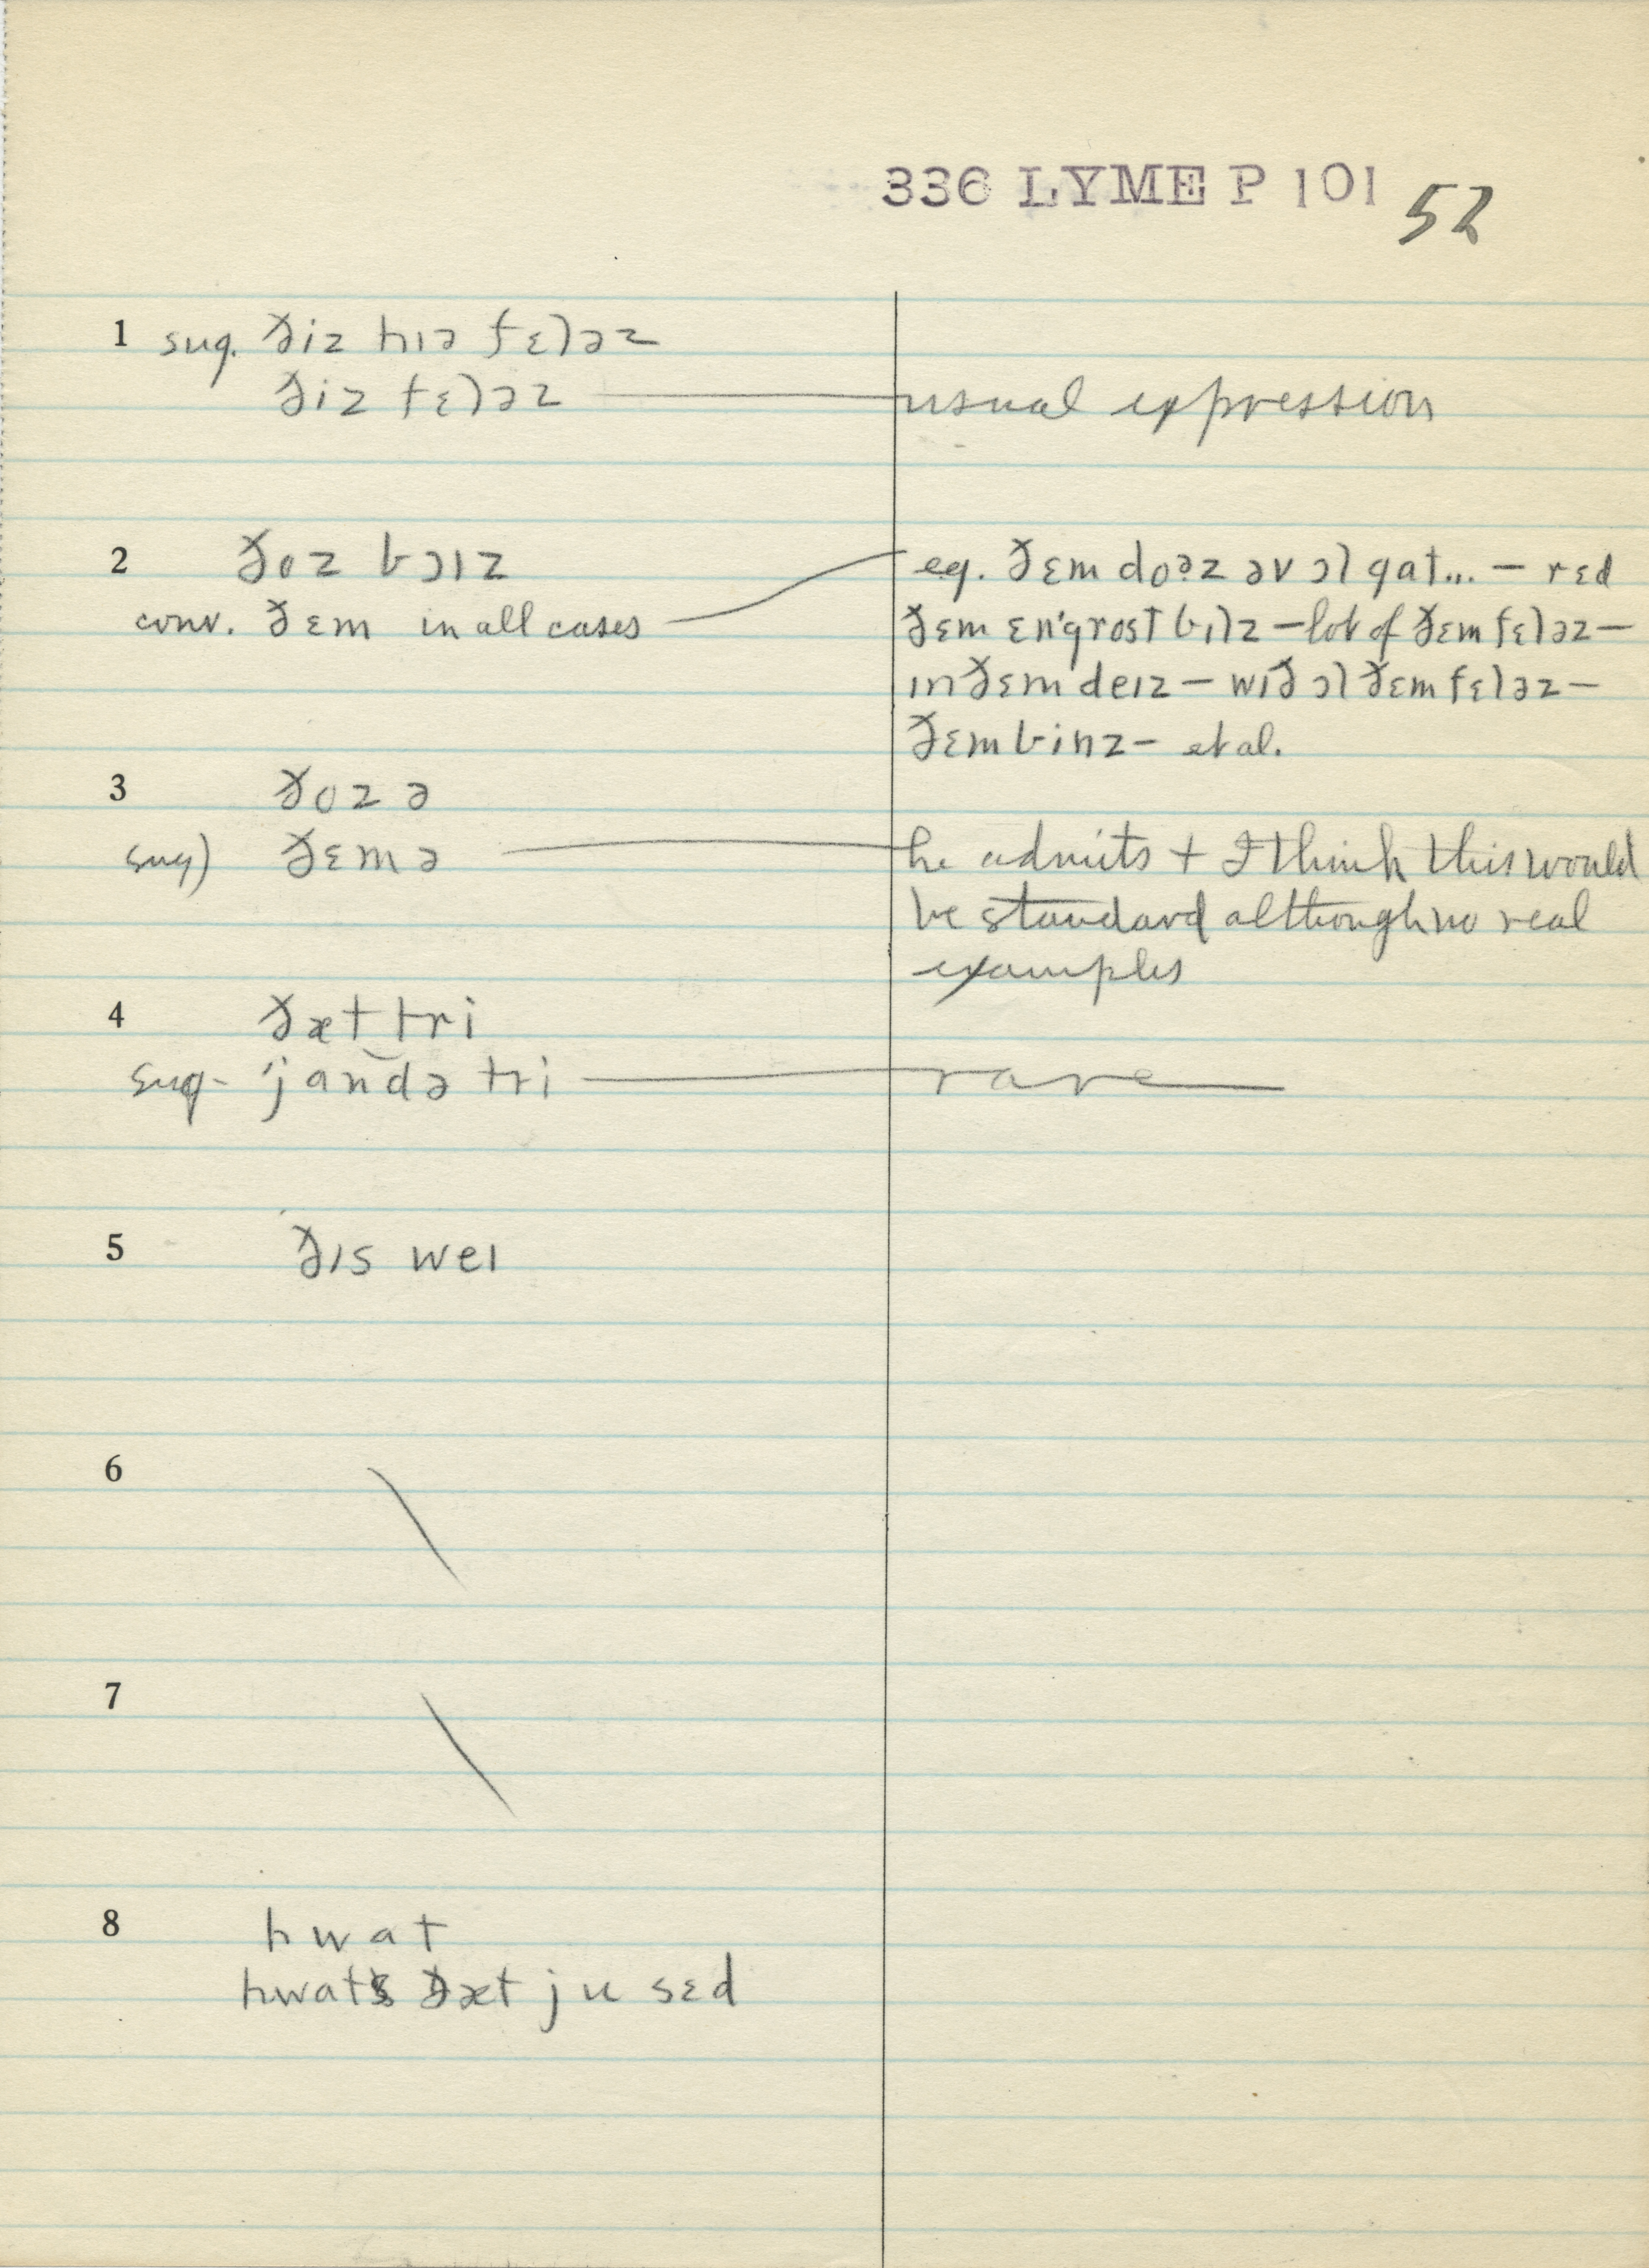 336 LYME P 101 52
1 sug. ðiz hɪə fɛləz
ðiz fɛləz — usual expression
2 ðoz bɔɪz
conv. ðɛm in all cases
eg. ðɛm doəz əv ɔl gat... — rɛd
ðɛm ɛn'grost bɪlz — lot of ðɛm fɛləz —
ɪn ðɛm deɪz — wɪð ɔl ðɛm fɛləz —
ðɛm binz — et al.
3 ðoz ə
sug) ðɛm ə — he admits + I think this would
be standard although no real
examples
4 ðæt tri
sug - 'jandə tri — rare
5 ðɪs weɪ
6
7
8 hwat
hwats ðæt ju sɛd